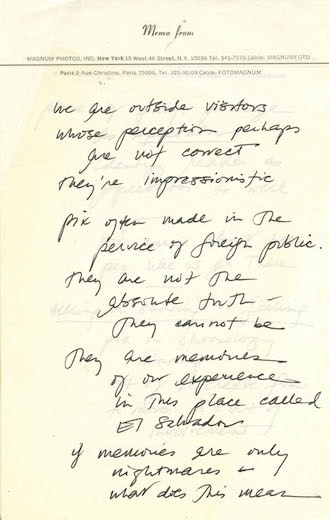 Memo from
MAGNUM PHOTOS, INC. New York 15 West 46 Street, N.Y. 10036 Tel. 541-7570 Cable: MAGNUMFOTO
Paris 2 Rue Christine, Paris 75006, Tel. 325-90.09 Cable: FOTOMAGNUM
we are outside visitors
whose perception perhaps
are not correct
they're impressionistic
pix often made in the
service of foreign public.
They are not the
absolute truth –
They cannot be
They are memories
of our experience
in This place called
El Salvador
if memories are only
nightmares
what does this mean